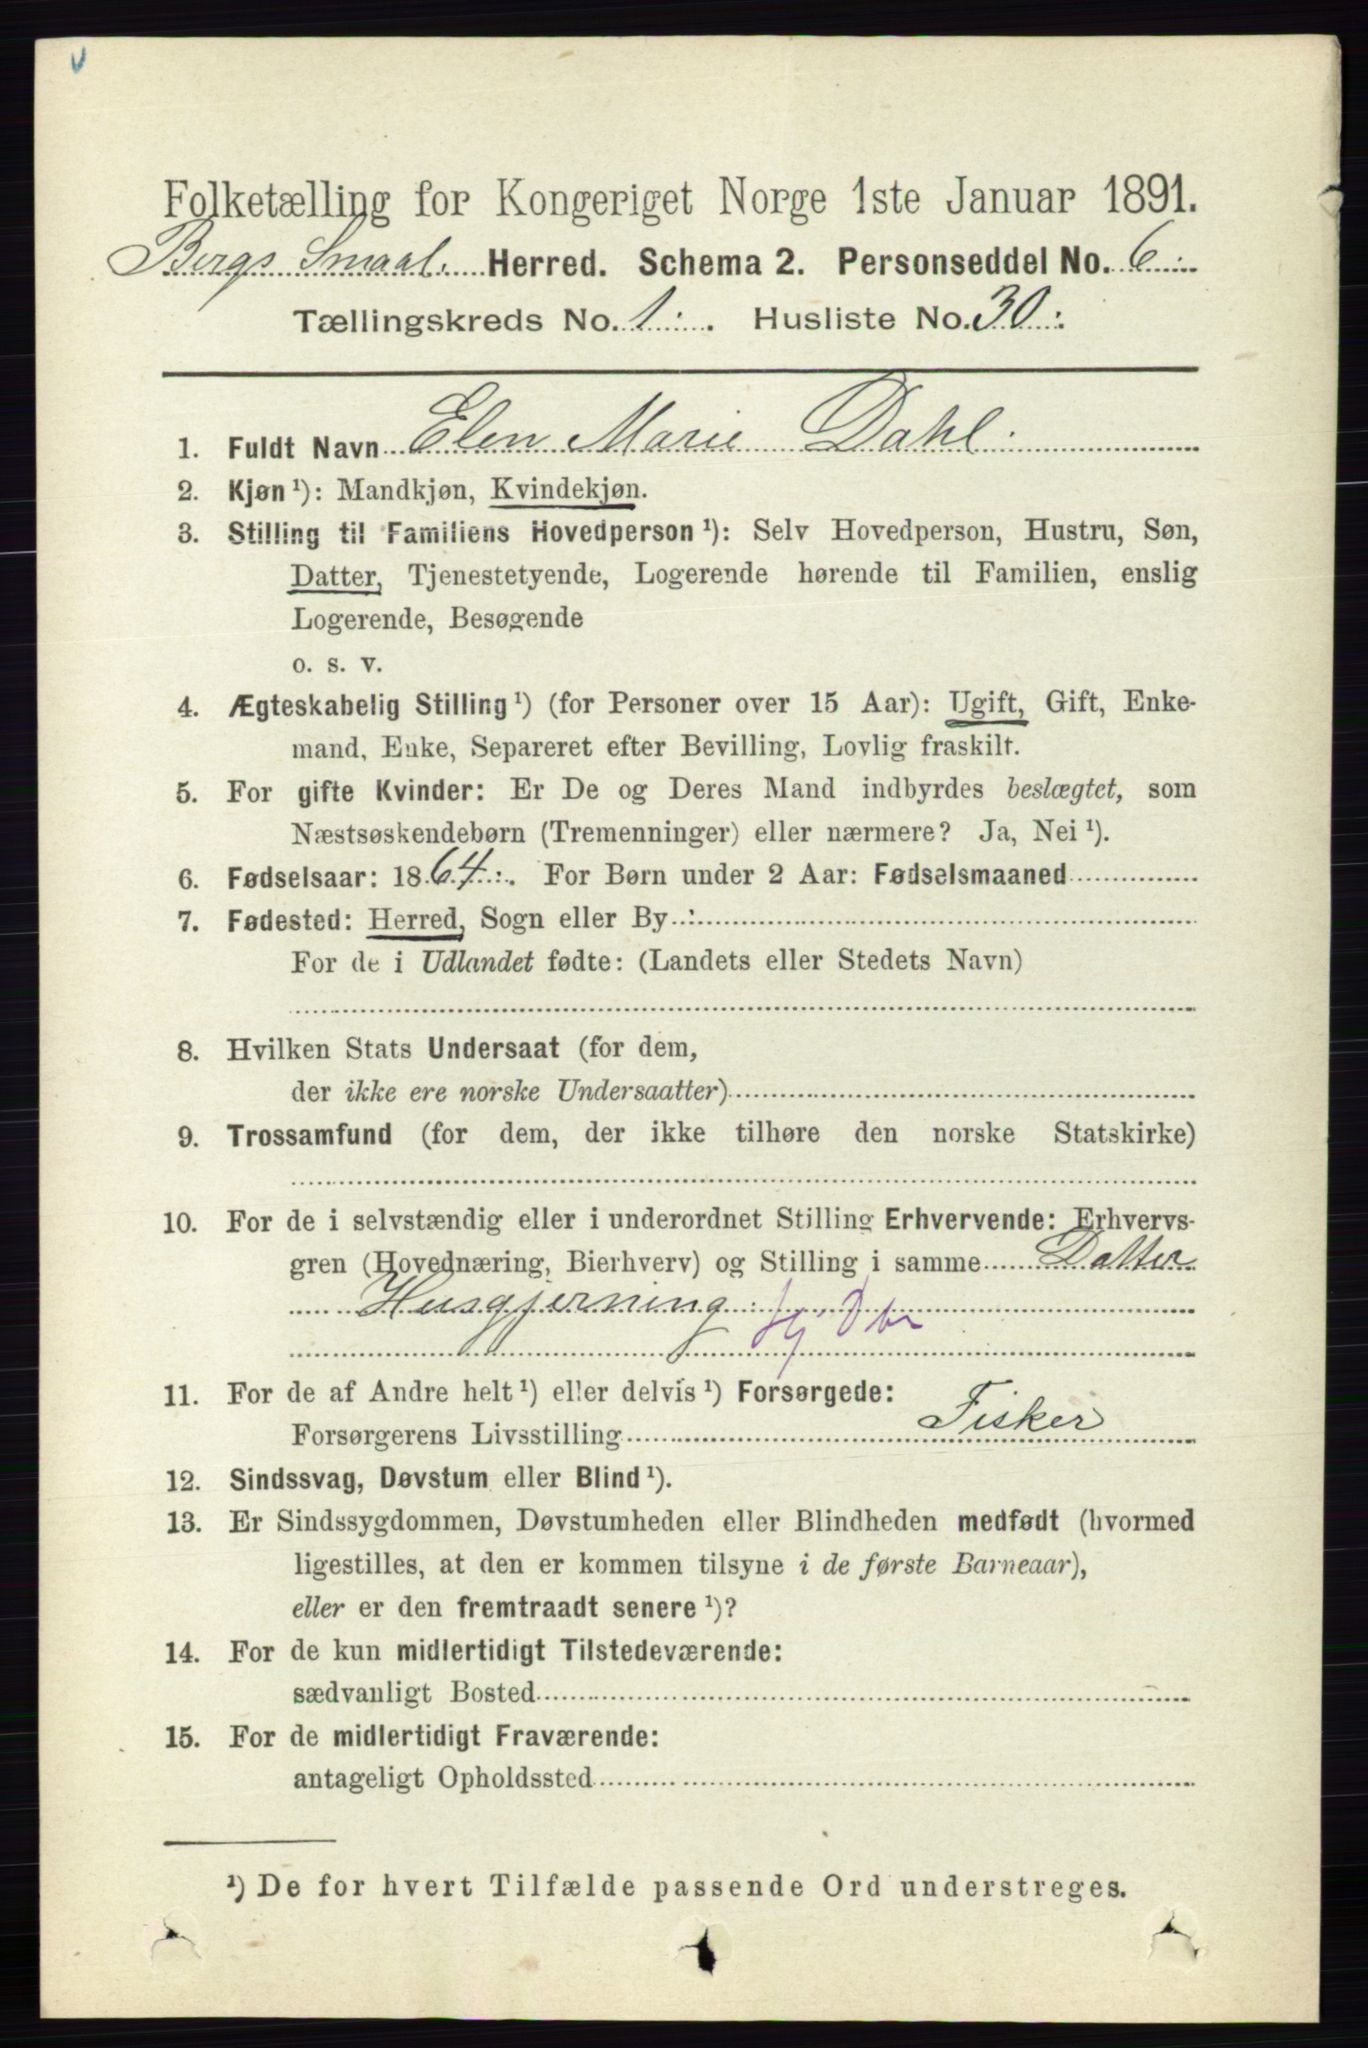 Folketælling for Kongeriget Norge 1ste Januar 1891.
Bergs Smaal. Herred. Schema 2. Personseddel No. 6.
Tællingskreds No. 1. Husliste No. 30.
1. Fuldt Navn Elen Marie Dahl.
2. Kjøn ¹): Mandkjøn, Kvindekjøn.
3. Stilling til Familiens Hovedperson ¹): Selv Hovedperson, Hustru, Søn,
Datter, Tjenestetyende, Logerende hørende til Familien, enslig
Logerende, Besøgende
o. s. v.
4. Ægteskabelig Stilling ¹) (for Personer over 15 Aar): Ugift, Gift, Enke-
mand, Enke, Separeret efter Bevilling, Lovlig fraskilt.
5. For gifte Kvinder: Er De og Deres Mand indbyrdes beslægtet, som
Næstsøskendebørn (Tremenninger) eller nærmere? Ja, Nei ¹).
6. Fødselsaar: 1864. For Børn under 2 Aar: Fødselsmaaned
7. Fødested: Herred, Sogn eller By
For de i Udlandet fødte: (Landets eller Stedets Navn)
8. Hvilken Stats Undersaat (for dem,
der ikke ere norske Undersaatter)
9. Trossamfund (for dem, der ikke tilhøre den norske Statskirke)
10. For de i selvstændig eller i underordnet Stilling Erhvervende: Erhvervs-
gren (Hovednæring, Bierhverv) og Stilling i samme Datter
Husgjerning
11. For de af Andre helt ¹) eller delvis ¹) Forsørgede:
Forsørgerens Livsstilling Fisker
12. Sindssvag, Døvstum eller Blind ¹).
13. Er Sindssygdommen, Døvstumheden eller Blindheden medfødt (hvormed
ligestilles, at den er kommen tilsyne i de første Barneaar),
eller er den fremtraadt senere ¹)?
14. For de kun midlertidigt Tilstedeværende:
sædvanligt Bosted
15. For de midlertidigt Fraværende:
antageligt Opholdssted
¹) De for hvert Tilfælde passende Ord understreges.